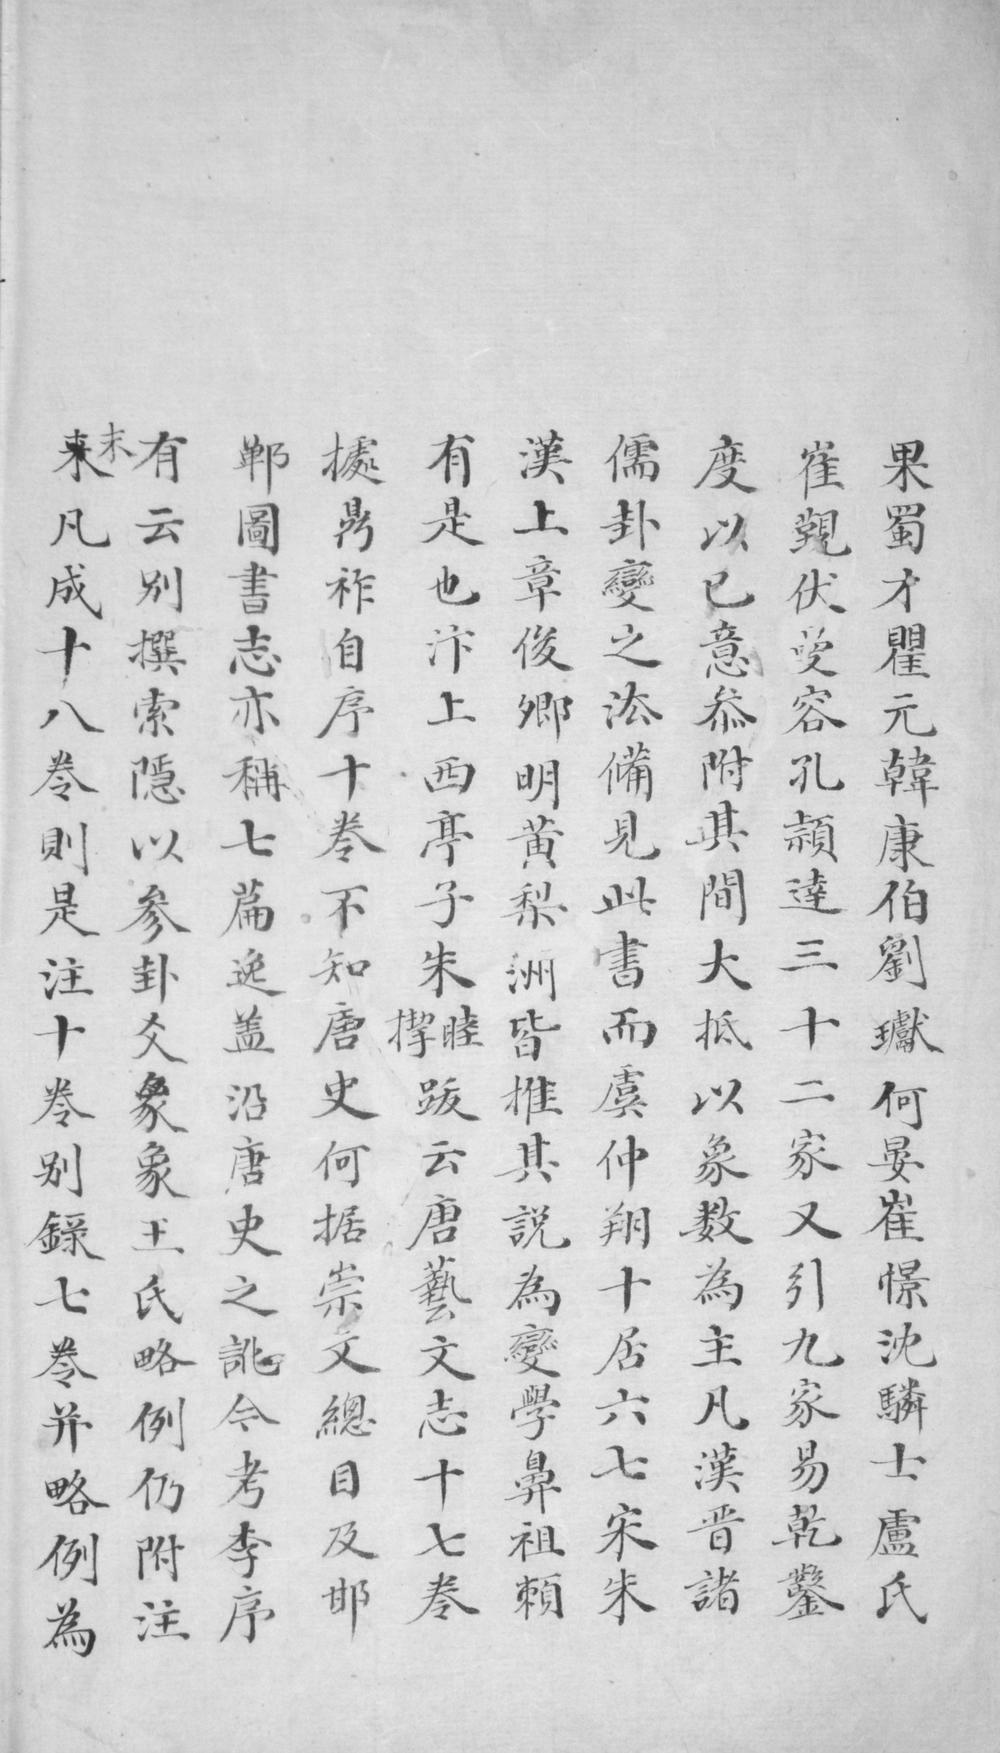 果蜀才瞿元韓康伯劉瓛何晏崔憬沈驎士盧氏
崔覲伏曼容孔頴達三十二家又引九家易乾鑿
度以已意叅附其間大抵以象数為主凡漢晋諸
儒卦變之法備見此書而虞仲翔十居六七宋朱
漢上章俊卿明黄梨洲皆推其説為變學鼻祖頼
有是也汴上西亭子朱睦㮮跋云唐藝文志十七卷
據鼎祚自序十卷不知唐史何据崇文總目及邯
鄲圖書志亦稱七篇逸盖沿唐史之訛今考李序
有云别撰索隱以參卦爻彖象王氏略例仍附注
末凡成十八卷則是注十卷别録七卷并略例為